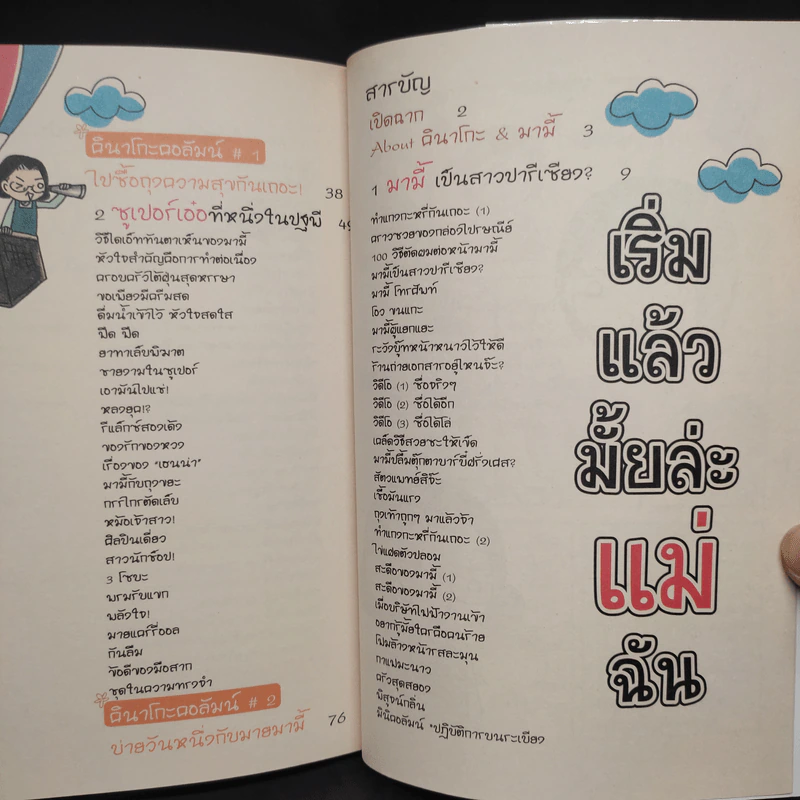 คินาโกะคอลัมน์ # 1
ไปซื้อถุงความสุขกันเถอะ! 38
2 ซูเปอร์เอ๋อที่หนึ่งในปฐพี 49
วิธีไดเอ็ททันตาเห็นของมามี้
หัวใจสำคัญคือการทำต่อเนื่อง
ครอบครัวไต้ฝุ่นสุดหรรษา
ขอเพียงมีครีมสด
ดื่มน้ำเข้าไว้ หัวใจสดใส
ปี๊ด ปี๊ด
ฮาทาเล็บพิฆาต
ชายงามในซูเปอร์
เอามันไปแช่!
หลงยุค!?
รีแล็กซ์สองเด้ง
ของรักของหวง
เรื่องของ "เฮนน่า"
มามี้กับถุงขยะ
กรรไกรตัดเล็บ
หม้อเจ้าสาว!
ศิลปินเดี่ยว
สาวนักช็อป!
3 โซบะ
พรมรับแขก
พลังใจ!
มายแคร์รี่ออล
กันลืม
ข้อดีของมือสาก
ชุดในความทรงจำ
คินาโกะคอลัมน์ # 2
บ่ายวันหนึ่งกับมายมามี้ 76
สารบัญ
เปิดฉาก 2
About คินาโกะ & มามี้ 3
1 มามี้ เป็นสาวปารีเซียง? 9
ทำแกงกะหรี่กันเถอะ (1)
คราวซวยของกล่องไปรษณีย์
100 วิธีตัดผมต่อหน้ามามี้
มามี้เป็นสาวปารีเซียง?
มามี้ โทรศัพท์
โอว ขนแกะ
มามี้ผู้แยกแยะ
ระวังบุ๊ทหน้าหนาวไว้ให้ดี
ร้านถ่ายเอกสารอยู่ไหนจ๊ะ?
วิดีโอ (1) ชื่อจริงๆ
วิดีโอ (2) ชื่อได้อีก
วิดีโอ (3) ชื่อได้โล่
เคล็ดวิธีสวยชะให้เข็ด
มามี้ปลื้มตุ๊กตาบาร์บี้ฝรั่งเศส?
สัตวแพทย์สิจ๊ะ
เชื้อมันแรง
ถุงเท้าถูกๆ มาแล้วจ้า
ทำแกงกะหรี่กันเถอะ (2)
ไข่แฝดตัวปลอม
สะดือของมามี้ (1)
สะดือของมามี้ (2)
เมื่อบริษัทไฟฟ้างานเข้า
อยากรู้มั้ยใครคือคนร้าย
โฟมล้างหน้ารสละมุน
กาแฟมะนาว
ครัวสุดสยอง
พิสูจน์กลิ่น
มินิคอลัมน์ "ปฏิบัติการบนระเบียง
เริ่ม
แล้ว
มั้ยล่ะ
แม่
ฉัน